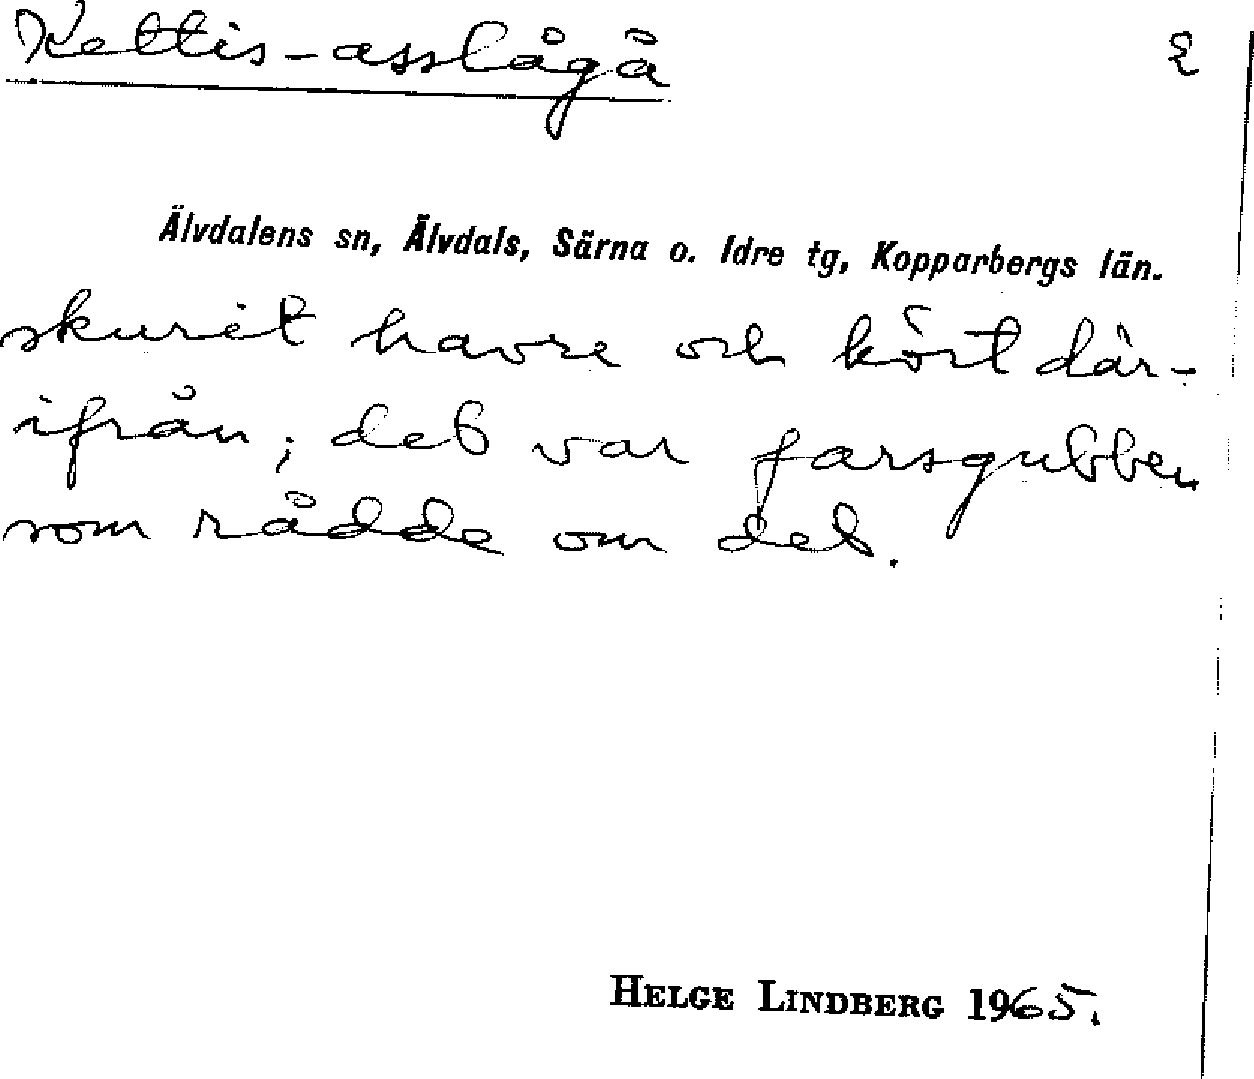 Kettis-asslågå 2
Älvdalens sn, Älvdals, Särna o. Idre tg, Kopparbergs län.
skurit havre och kört där-
ifrån; det var farsgubben
som rådde om det.
HELGE LINDBERG 1965.